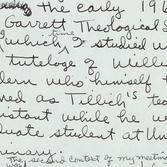 the early 196
Garrett Theological S
which time I studied
tutelage of Willi
dern who himself t
ned as Tillich's tea
istant while he w
duate student at Un
inary.
The second context of my me
was